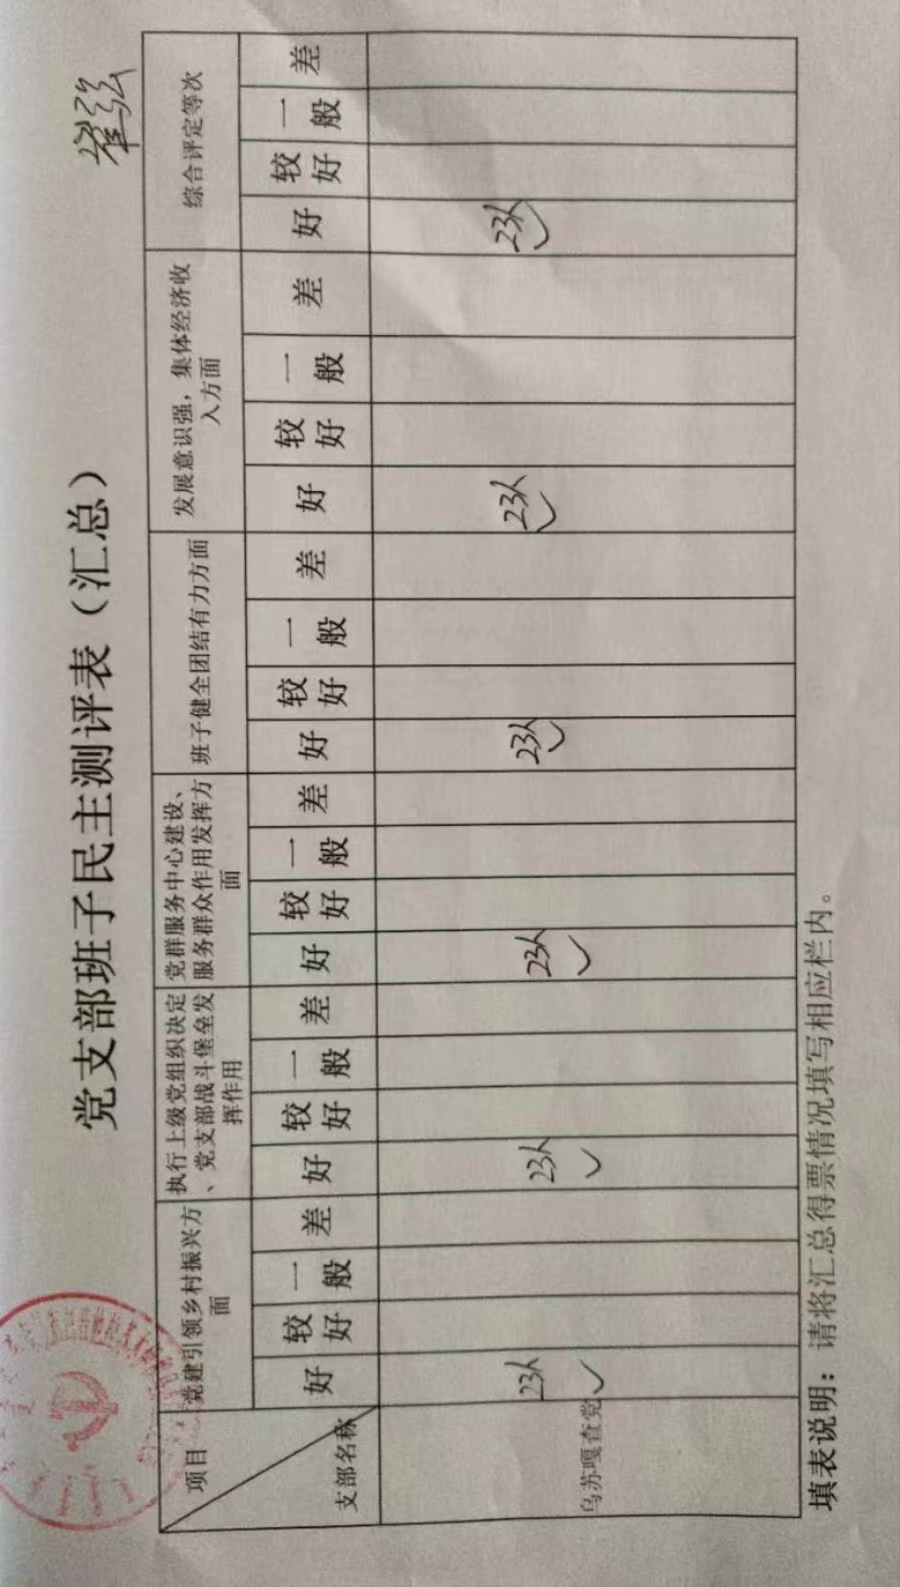 党支部班子民主测评表（汇总）
崔弘
项目
支部名称
党建引领乡村振兴方
面
执行上级党组织决定
、党支部战斗堡垒发
挥作用
党群服务中心建设、
服务群众作用发挥方
面
班子健全团结有力方面
发展意识强，集体经济收
入方面
综合评定等次
好 较好 一般 差 好 较好 一般 差 好 较好 一般 差 好 较好 一般 差 好 较好 一般 差 好 较好 一般 差
乌苏嘎查党 23人 ✓ 23人 ✓ 23人 ✓ 23人 ✓ 23人 ✓ 23人 ✓
填表说明：请将汇总得票情况填写相应栏内。